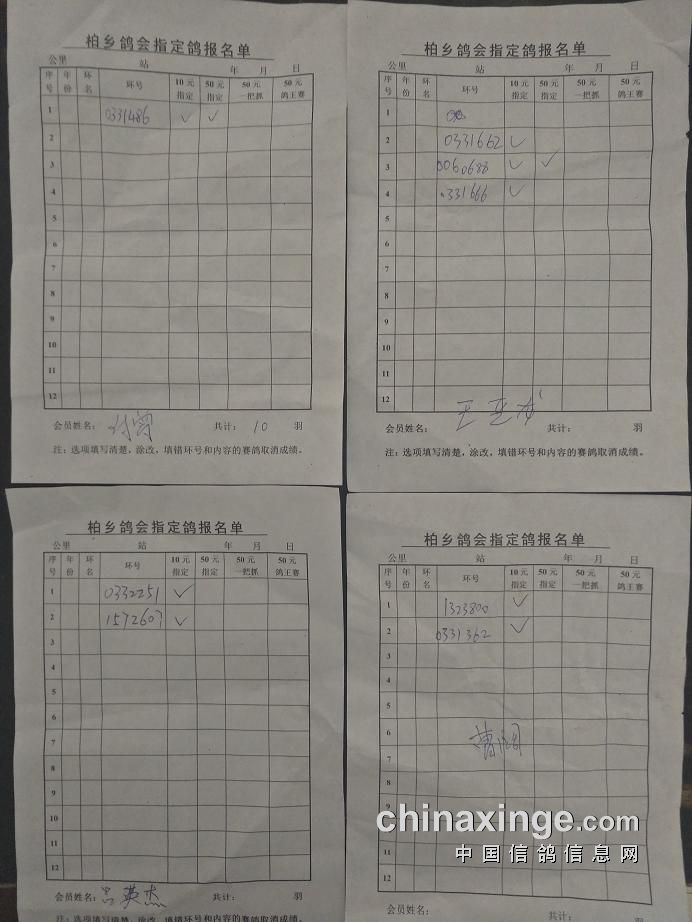 柏乡鸽会指定鸽报名单
公里 站 年 月 日
序号 年份 环名 环号 10元指定 50元指定 50元一把抓 50元鸽王赛
1 0331486 ✓ ✓
2
3
4
5
6
7
8
9
10
11
12
会员姓名: 共计: 10 羽
注:选项填写清楚,涂改,填错环号和内容的赛鸽取消成绩。
柏乡鸽会指定鸽报名单
公里 站 年 月 日
序号 年份 环名 环号 10元指定 50元指定 50元一把抓 50元鸽王赛
1
2 0331662 ✓
3 0060688 ✓ ✓
4 0331666 ✓
5
6
7
8
9
10
11
12
会员姓名: 王亚 共计: 羽
注:选项填写清楚,涂改,填错环号和内容的赛鸽取消成绩。
柏乡鸽会指定鸽报名单
公里 站 年 月 日
序号 年份 环名 环号 10元指定 50元指定 50元一把抓 50元鸽王赛
1 0332251 ✓
2 1572607 ✓
3
4
5
6
7
8
9
10
11
12
会员姓名: 吕英杰 共计: 羽
注:选项填写清楚,涂改,填错环号和内容的赛鸽取消成绩。
柏乡鸽会指定鸽报名单
公里 站 年 月 日
序号 年份 环名 环号 10元指定 50元指定 50元一把抓 50元鸽王赛
1 1323800 ✓
2 0331362 ✓
3
4
5
6
7
8
9
10
11
12
会员姓名: 共计: 羽
注:选项填写清楚,涂改,填错环号和内容的赛鸽取消成绩。
chinaxinge.com
中国信鸽信息网